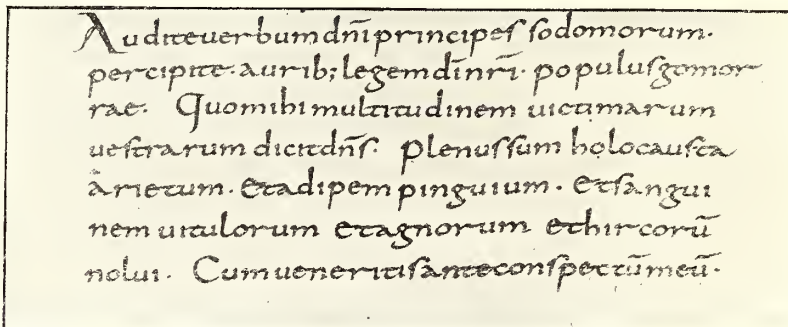 Audite uerbum dn̄i principes sodomorum·
percipite· aurib; legem dīnrī· populus gomor
rae· Quo mihi multitudinem uictimarum
uestrarum dicit dn̄s· Plenus sum holocausta
arietum· Et adipem pinguium· Et sangui
nem uitulorum et agnorum et hircorū
nolui· Cum ueneritis ante conspectū meū·